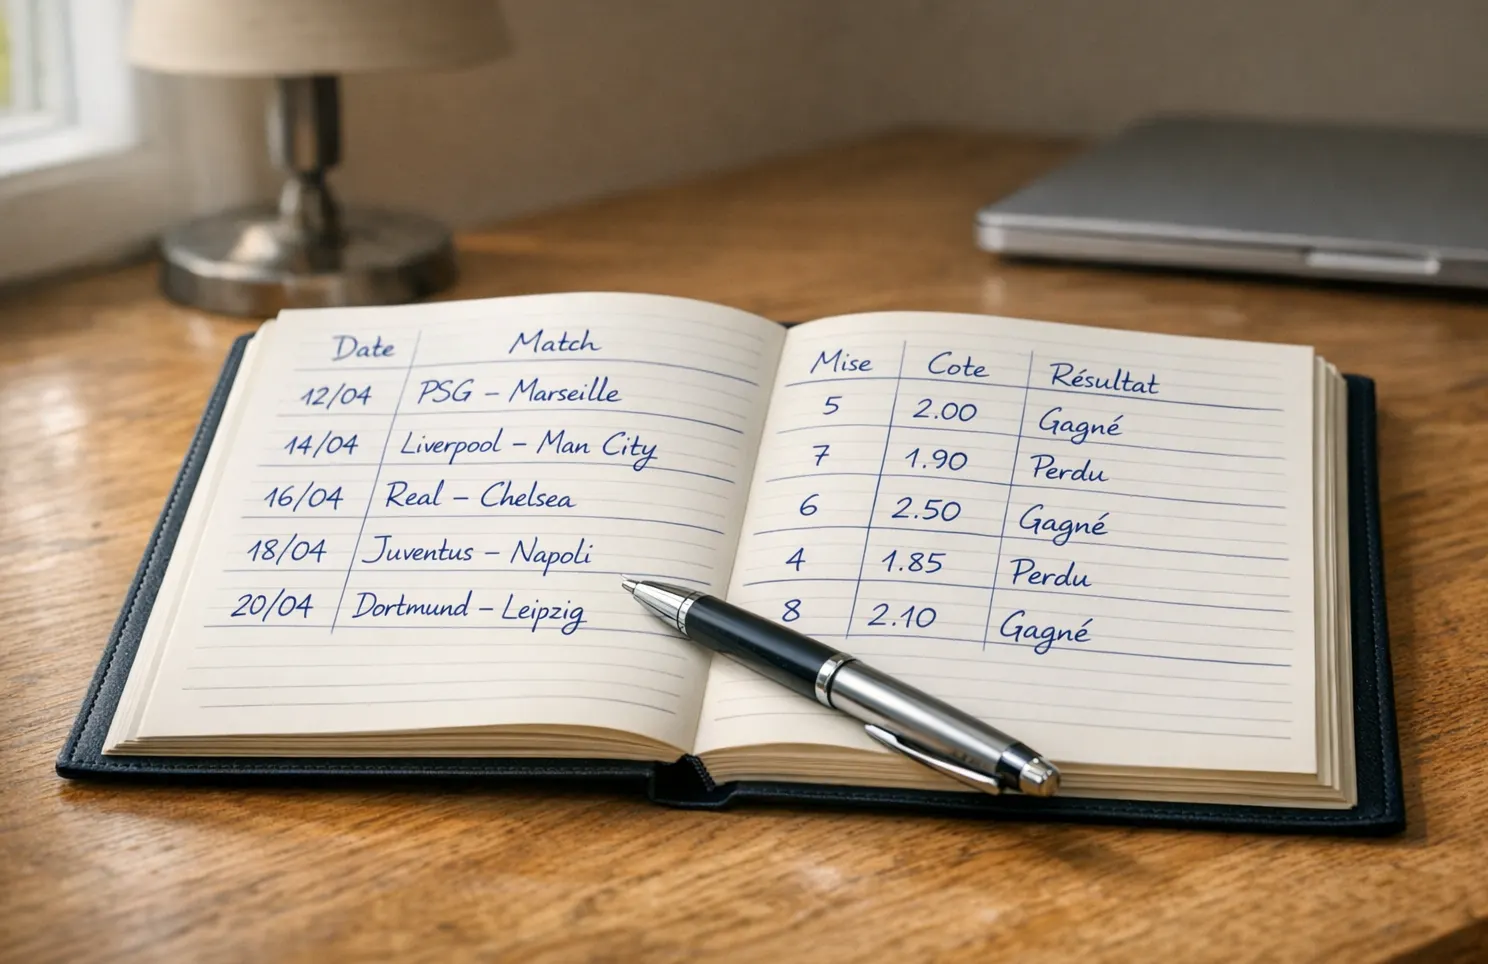 Date Match Mise Cote Résultat
12/04 PSG – Marseille 5 2.00 Gagné
14/04 Liverpool – Man City 7 1.90 Perdu
16/04 Real – Chelsea 6 2.50 Gagné
18/04 Juventus – Napoli 4 1.85 Perdu
20/04 Dortmund – Leipzig 8 2.10 Gagné